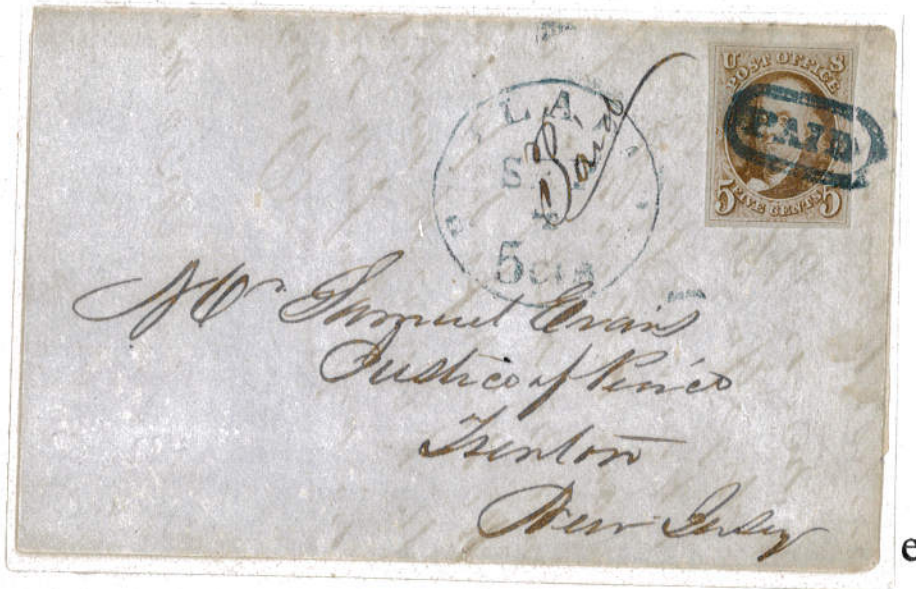 U S
POST OFFICE
PAID
5 FIVE CENTS 5
Paid
5 cts
Mr Samuel Evans
Justice of Peace
Trenton
New Jersey
e